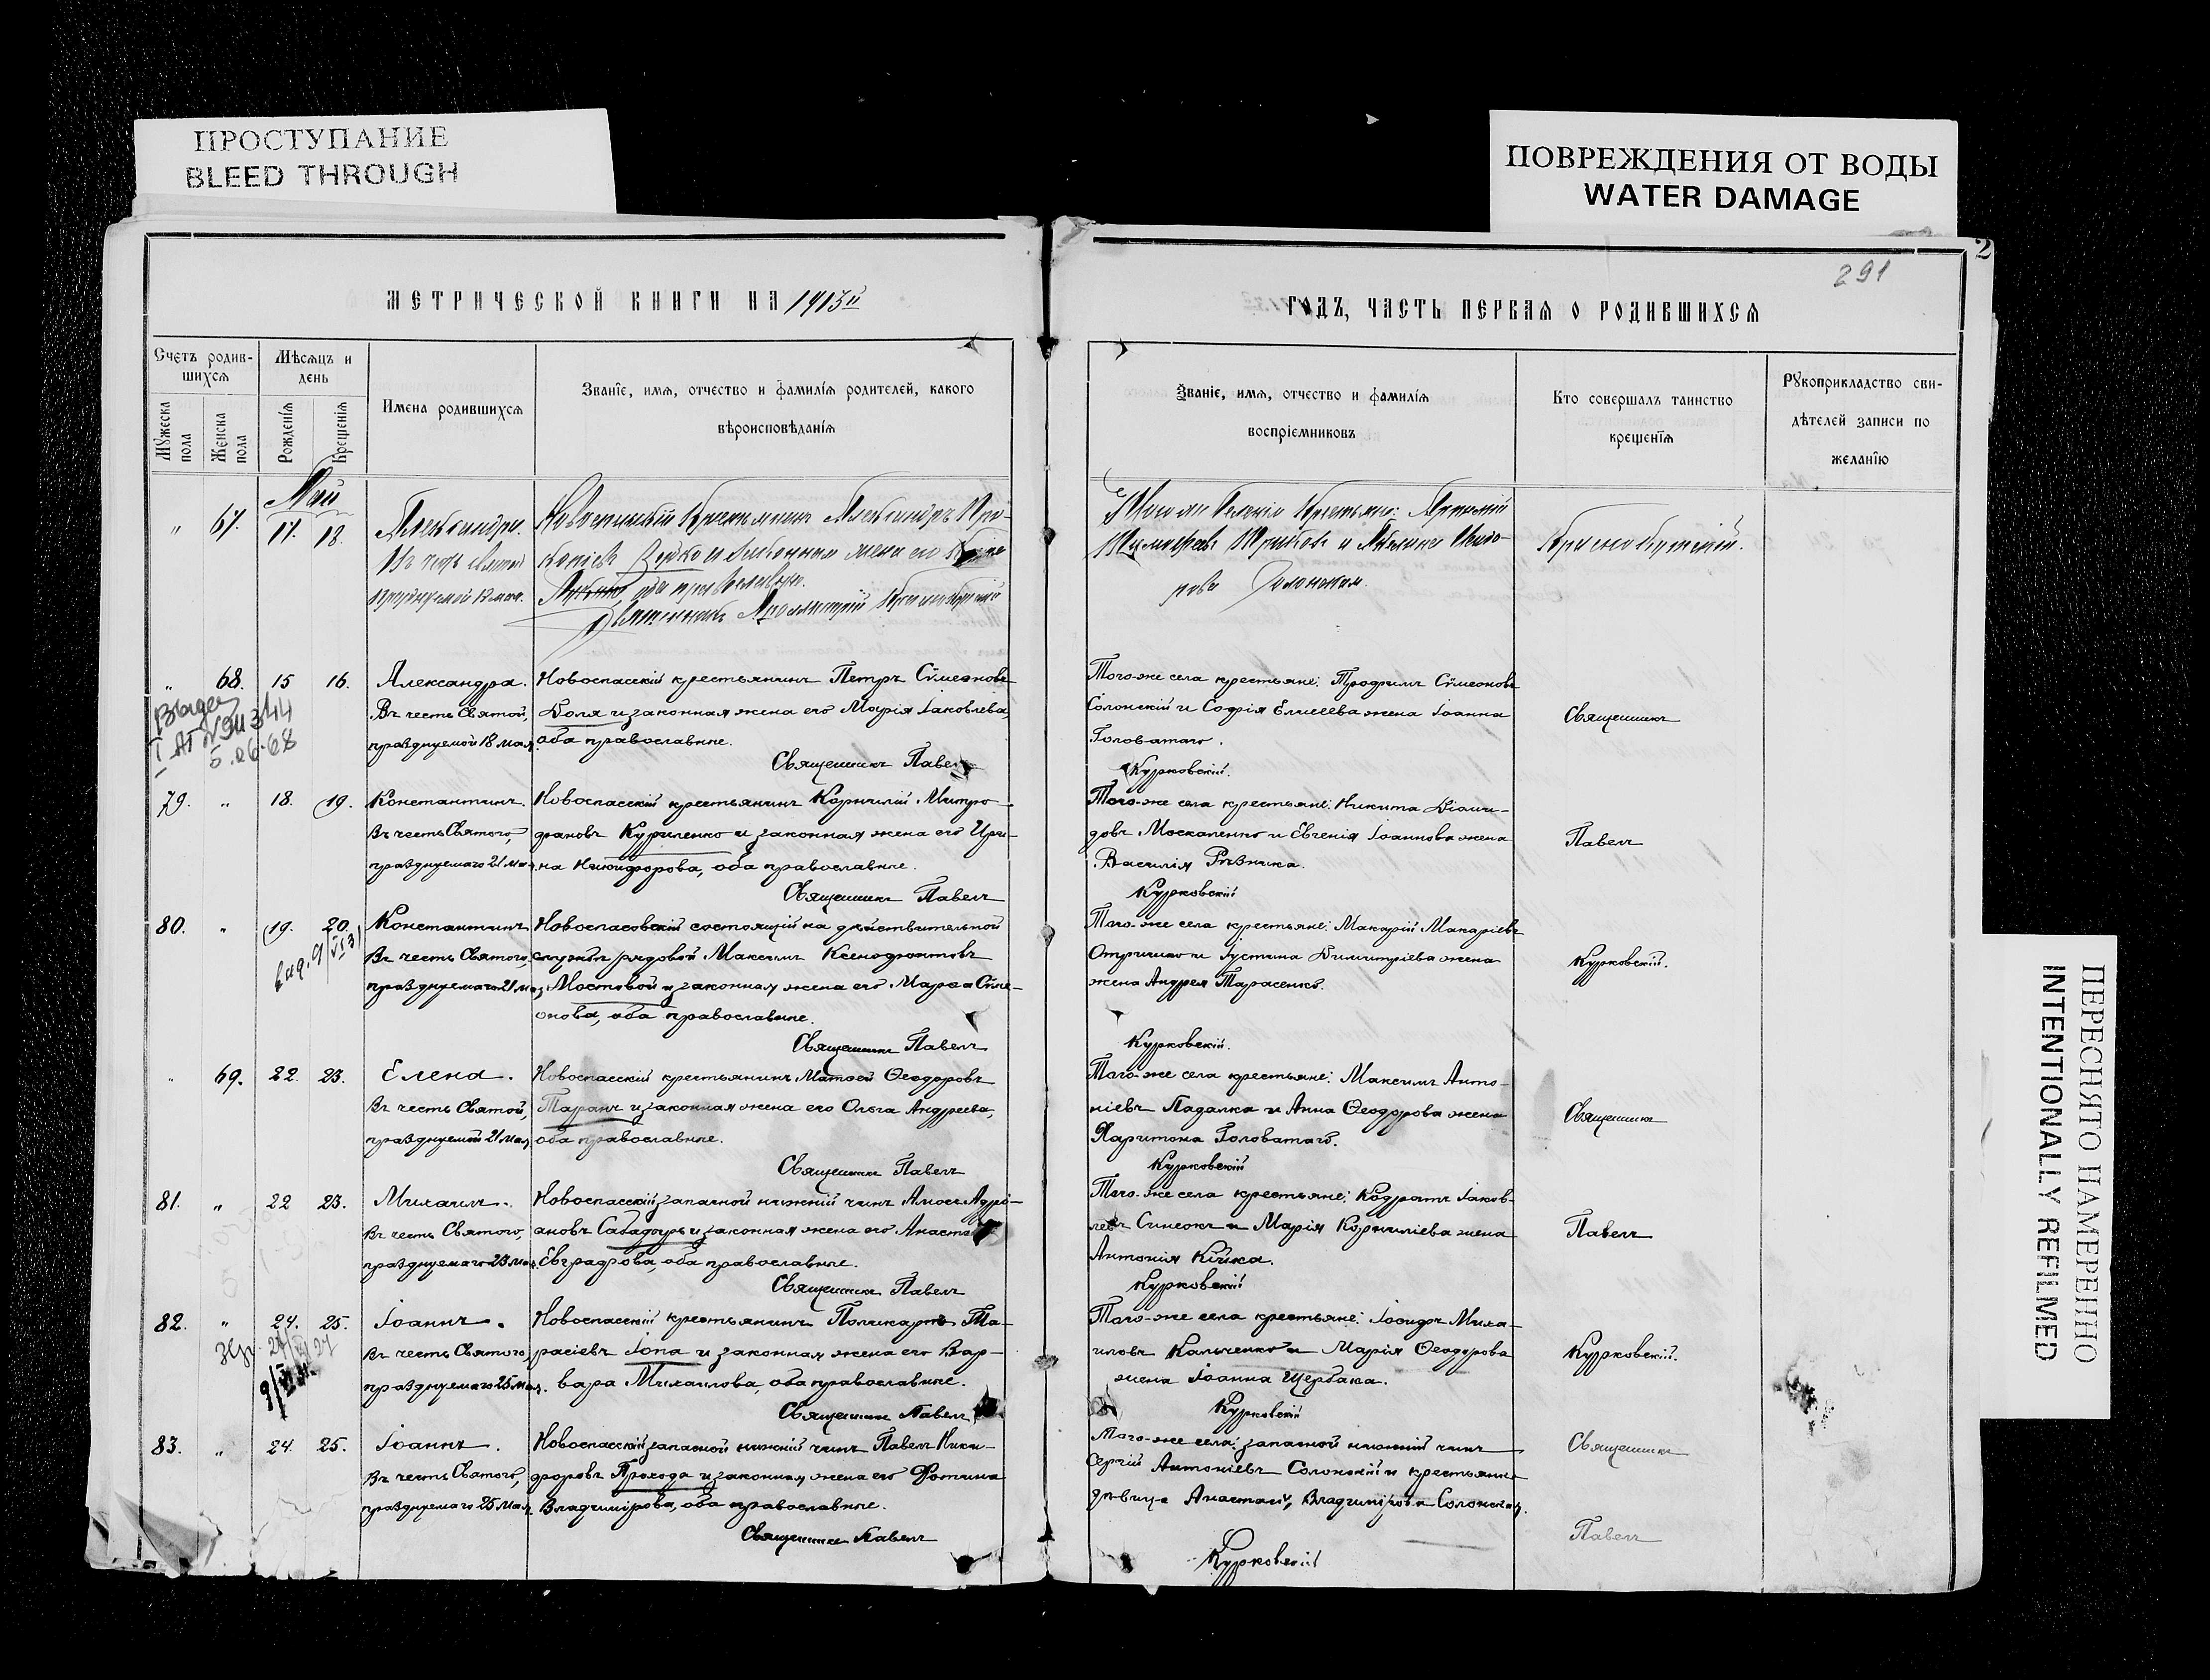 ПРОСТУПАНИЕ
BLEED THROUGH
ПОВРЕЖДЕНИЯ ОТ ВОДЫ
WATER DAMAGE
2
291
МЕТРИЧЕСКОЙ КНИГИ НА 1913й
ГОДЪ, ЧАСТЬ ПЕРВАЯ О РОДИВШИХСЯ
Счетъ родив-
шихся
Мѣсяцъ и
день
Мужеска
пола
Женска
пола
Рожденія
Крещенія
Имена родившихся
Званіе, имя, отчество и фамилія родителей, какого
вѣроисповѣданія
Званіе, имя, отчество и фамилія
воспріемниковъ
Кто совершалъ таинство
крещенія
Рукоприкладство сви-
дѣтелей записи по
желанію
Май
" 67. 17. 18.
Александра.
Въ честь святой
празднуемой 18 мая.
оба православн.
Священникъ
" 68. 15 16.
Александра.
Въ честь Святой,
празднуемой 18 мая.
Новоспасскій крестьянинъ Петръ Сѵмеоновъ
Доля и законная жена его Марія Іаковлева,
оба православные.
Священникъ Павелъ
Того-же села крестьяне: Трофимъ Сѵмеоновъ
Солонскій и Софія Елисеева жена Іоанна
Головатаго.
Курковскій.
Священникъ
79. " 18. 19.
Константинъ.
Въ честь Святого,
празднуемаго 21 мая.
Новоспасскій крестьянинъ Корнилій Митро-
фановъ Куриленко и законная жена его Ири-
на Никифорова, оба православные.
Священникъ Павелъ
Того-же села крестьяне: Никита Діоми-
довъ Москаленко и Евгенія Іоаннова жена
Василія Рѣзника.
Курковскій
Павелъ
80. " 19. 20.
Константинъ
Въ честь Святого,
празднуемаго 21 мая
Новоспасовскій состоящій на дѣйствительной
службѣ рядовой Максимъ Ксенофонтовъ
Мостовой и законная жена его Марѳа Сѵме-
онова, оба православные.
Священникъ Павелъ
Того-же села крестьяне: Макарій Макаріевъ
Отришко и Іустина Димитріева жена
жена Андрея Тарасенко.
Курковскій.
Курковскій.
" 69. 22. 23.
Елена.
Въ честь Святой,
празднуемой 21 мая
Новоспасскій крестьянинъ Матѳей Ѳеодоровъ
Таранъ и законная жена его Ольга Андреева,
оба православные.
Священникъ Павелъ
Того-же села крестьяне: Максимъ Анто-
ніевъ Падалка и Анна Ѳеодорова жена
Харитона Головатаго.
Курковскій
Священникъ
81. " 22 23.
Михаилъ.
Въ честь Святого,
празднуемаго 23 мая.
Новоспасскій запасной нижній чинъ Амосъ Адрі-
ановъ Сабадырь и законная жена его
Евграфова, оба православные.
Священникъ Павелъ
Того-же села крестьяне: Кодратъ Іаков-
левъ Синеокъ и Марія Корниліева жена
Антонія Кійка.
Курковскій
Павелъ
82. " 24. 25.
Іоаннъ.
Въ честь Святого,
празднуемаго 25 мая.
Новоспасскій крестьянинъ Поликарпъ Та-
расіевъ Іопа и законная жена его Вар-
вара Михаилова, оба православные.
Священникъ Павелъ
Того-же села крестьяне: Іосифъ Миха-
иловъ Кальченко и Марія Ѳеодорова
жена Іоанна Щербака.
Курковскій
Курковскій.
83. " 24. 25.
Іоаннъ.
Въ честь Святого,
празднуемаго 25 мая.
Новоспасскій запасной нижній чинъ Павелъ Ники-
форовъ Прохода и законная жена его Фотина
Владимірова, оба православные.
Священникъ Павелъ
Того-же села: запасной нижній чинъ
Сергій Антоніевъ Солонскій и крестьянка
дѣвица Анастасія Владимірова Солонская.
Курковскій
Священникъ
Павелъ
ПЕРЕСНЯТО НАМЕРЕННО
INTENTIONALLY REFILMED